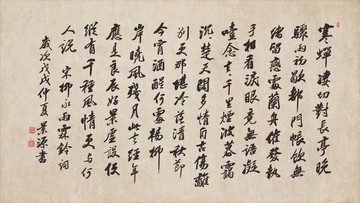 寒蟬凄切對長亭晚
驟雨初歇都門帳飲無
緒留戀處蘭舟催發執
手相看淚眼竟無語凝
噎念去去千里煙波暮靄
沉沉楚天闊多情自古傷離
別更那堪冷落清秋節
今宵酒醒何處楊柳
岸曉風殘月此去經年
應是良辰好景虛設便
縱有千種風情更與何
人說 宋柳永雨霖鈴詞
歲次戊戌仲夏 景源書